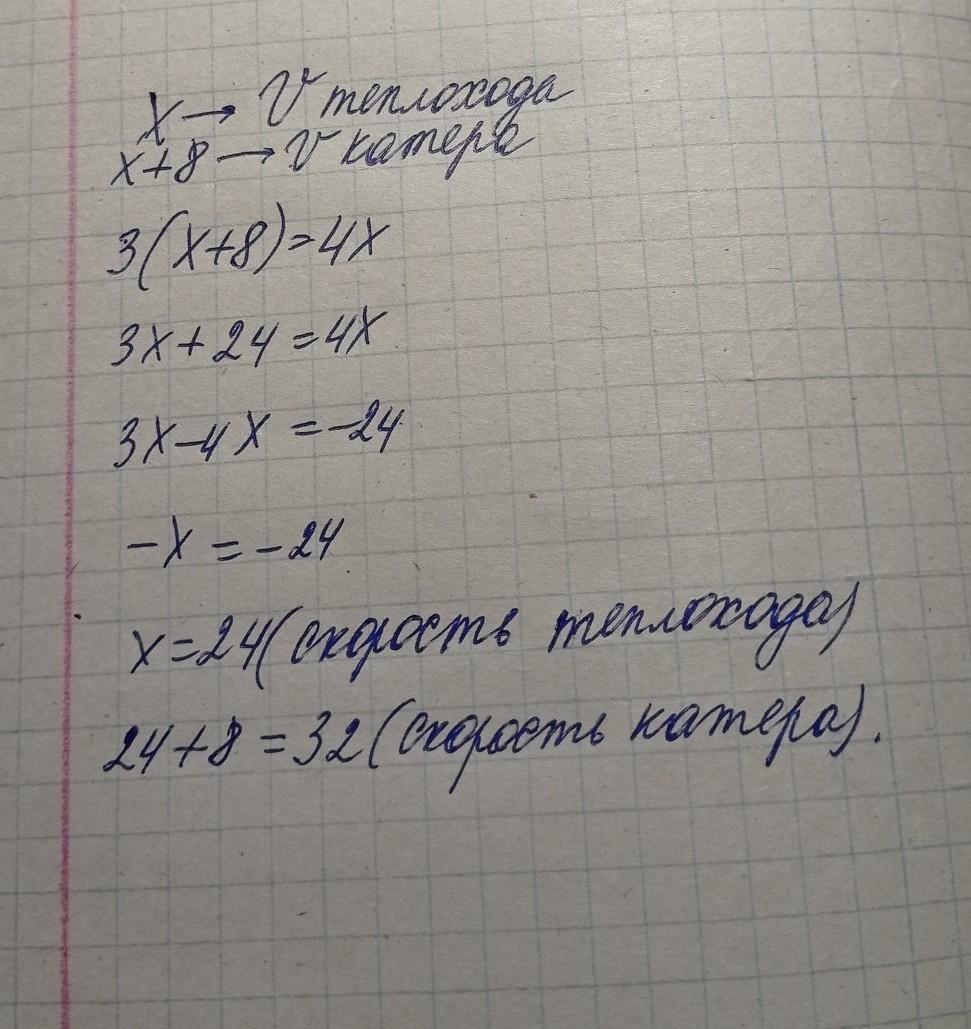 x → V теплохода
x+8 → V катера
3(x+8)=4x
3x+24=4x
3x-4x=-24
-x=-24
x=24(скорость теплохода)
24+8=32(скорость катера).